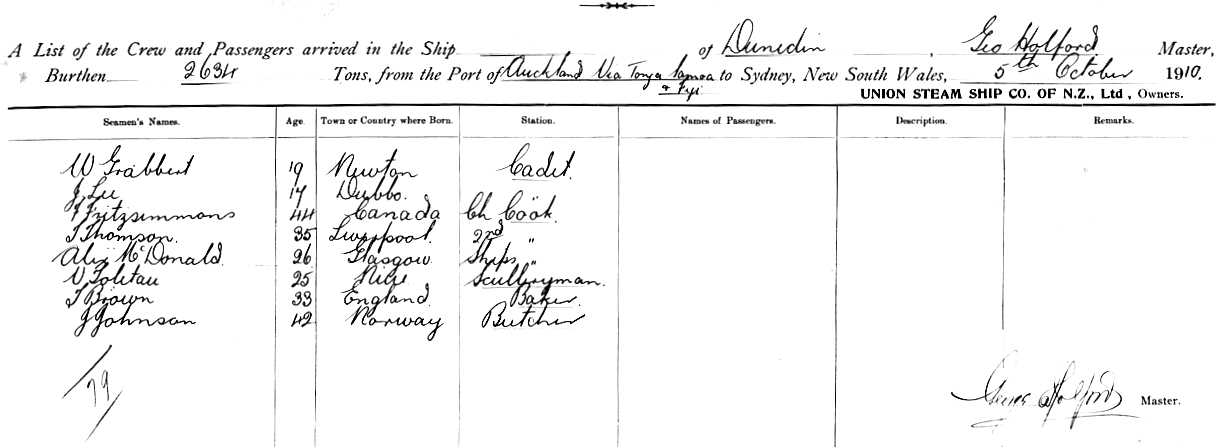 A List of the Crew and Passengers arrived in the Ship of Dunedin, Geo Holford Master,
Burthen 2634 Tons, from the Port of Auckland Via Tonga Samoa & Fiji to Sydney, New South Wales, 5th October 1910.
UNION STEAM SHIP CO. OF N.Z., Ltd, Owners.
Seamen's Names. Age. Town or Country where Born. Station. Names of Passengers. Description. Remarks.
W Grabbert 19 Newton Cadet.
J Lee 17 Dubbo. "
Fritzsimmons 44 Canada Ch Cook.
T Thomson. 35 Liverpool. 2nd "
Alex McDonald. 26 Glasgow Ships "
V 25 Niue Sculleryman.
T Brown 33 England. Baker.
J Johnson 42 Norway Butcher
79
Holford Master.